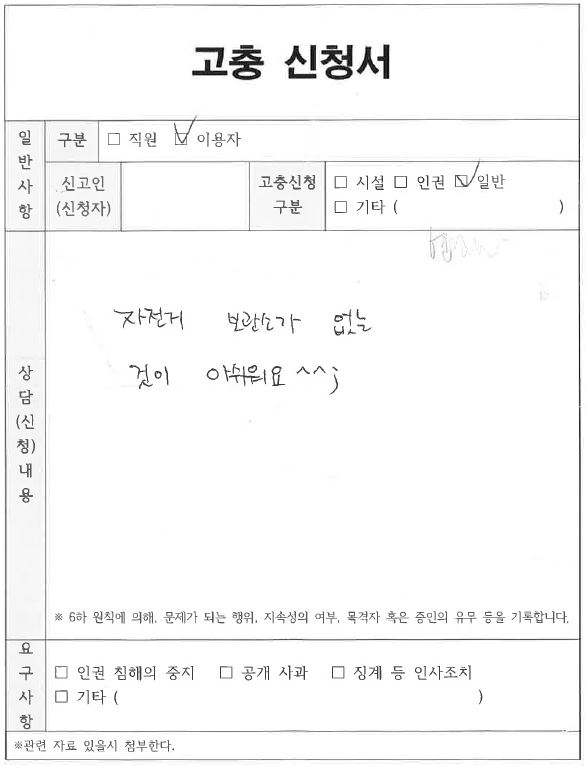 고충 신청서
일반사항
구분 □ 직원 ☑ 이용자
신고인
(신청자)
고충신청
구분
□ 시설 □ 인권 ☑ 일반
□ 기타 ( )
상담(신청)내용
자전거 보관소가 없는
것이 아쉬워요 ^^;
※ 6하 원칙에 의해, 문제가 되는 행위, 지속성의 여부, 목격자 혹은 증인의 유무 등을 기록합니다.
요구사항
□ 인권 침해의 중지 □ 공개 사과 □ 징계 등 인사조치
□ 기타 ( )
※관련 자료 있을시 첨부한다.